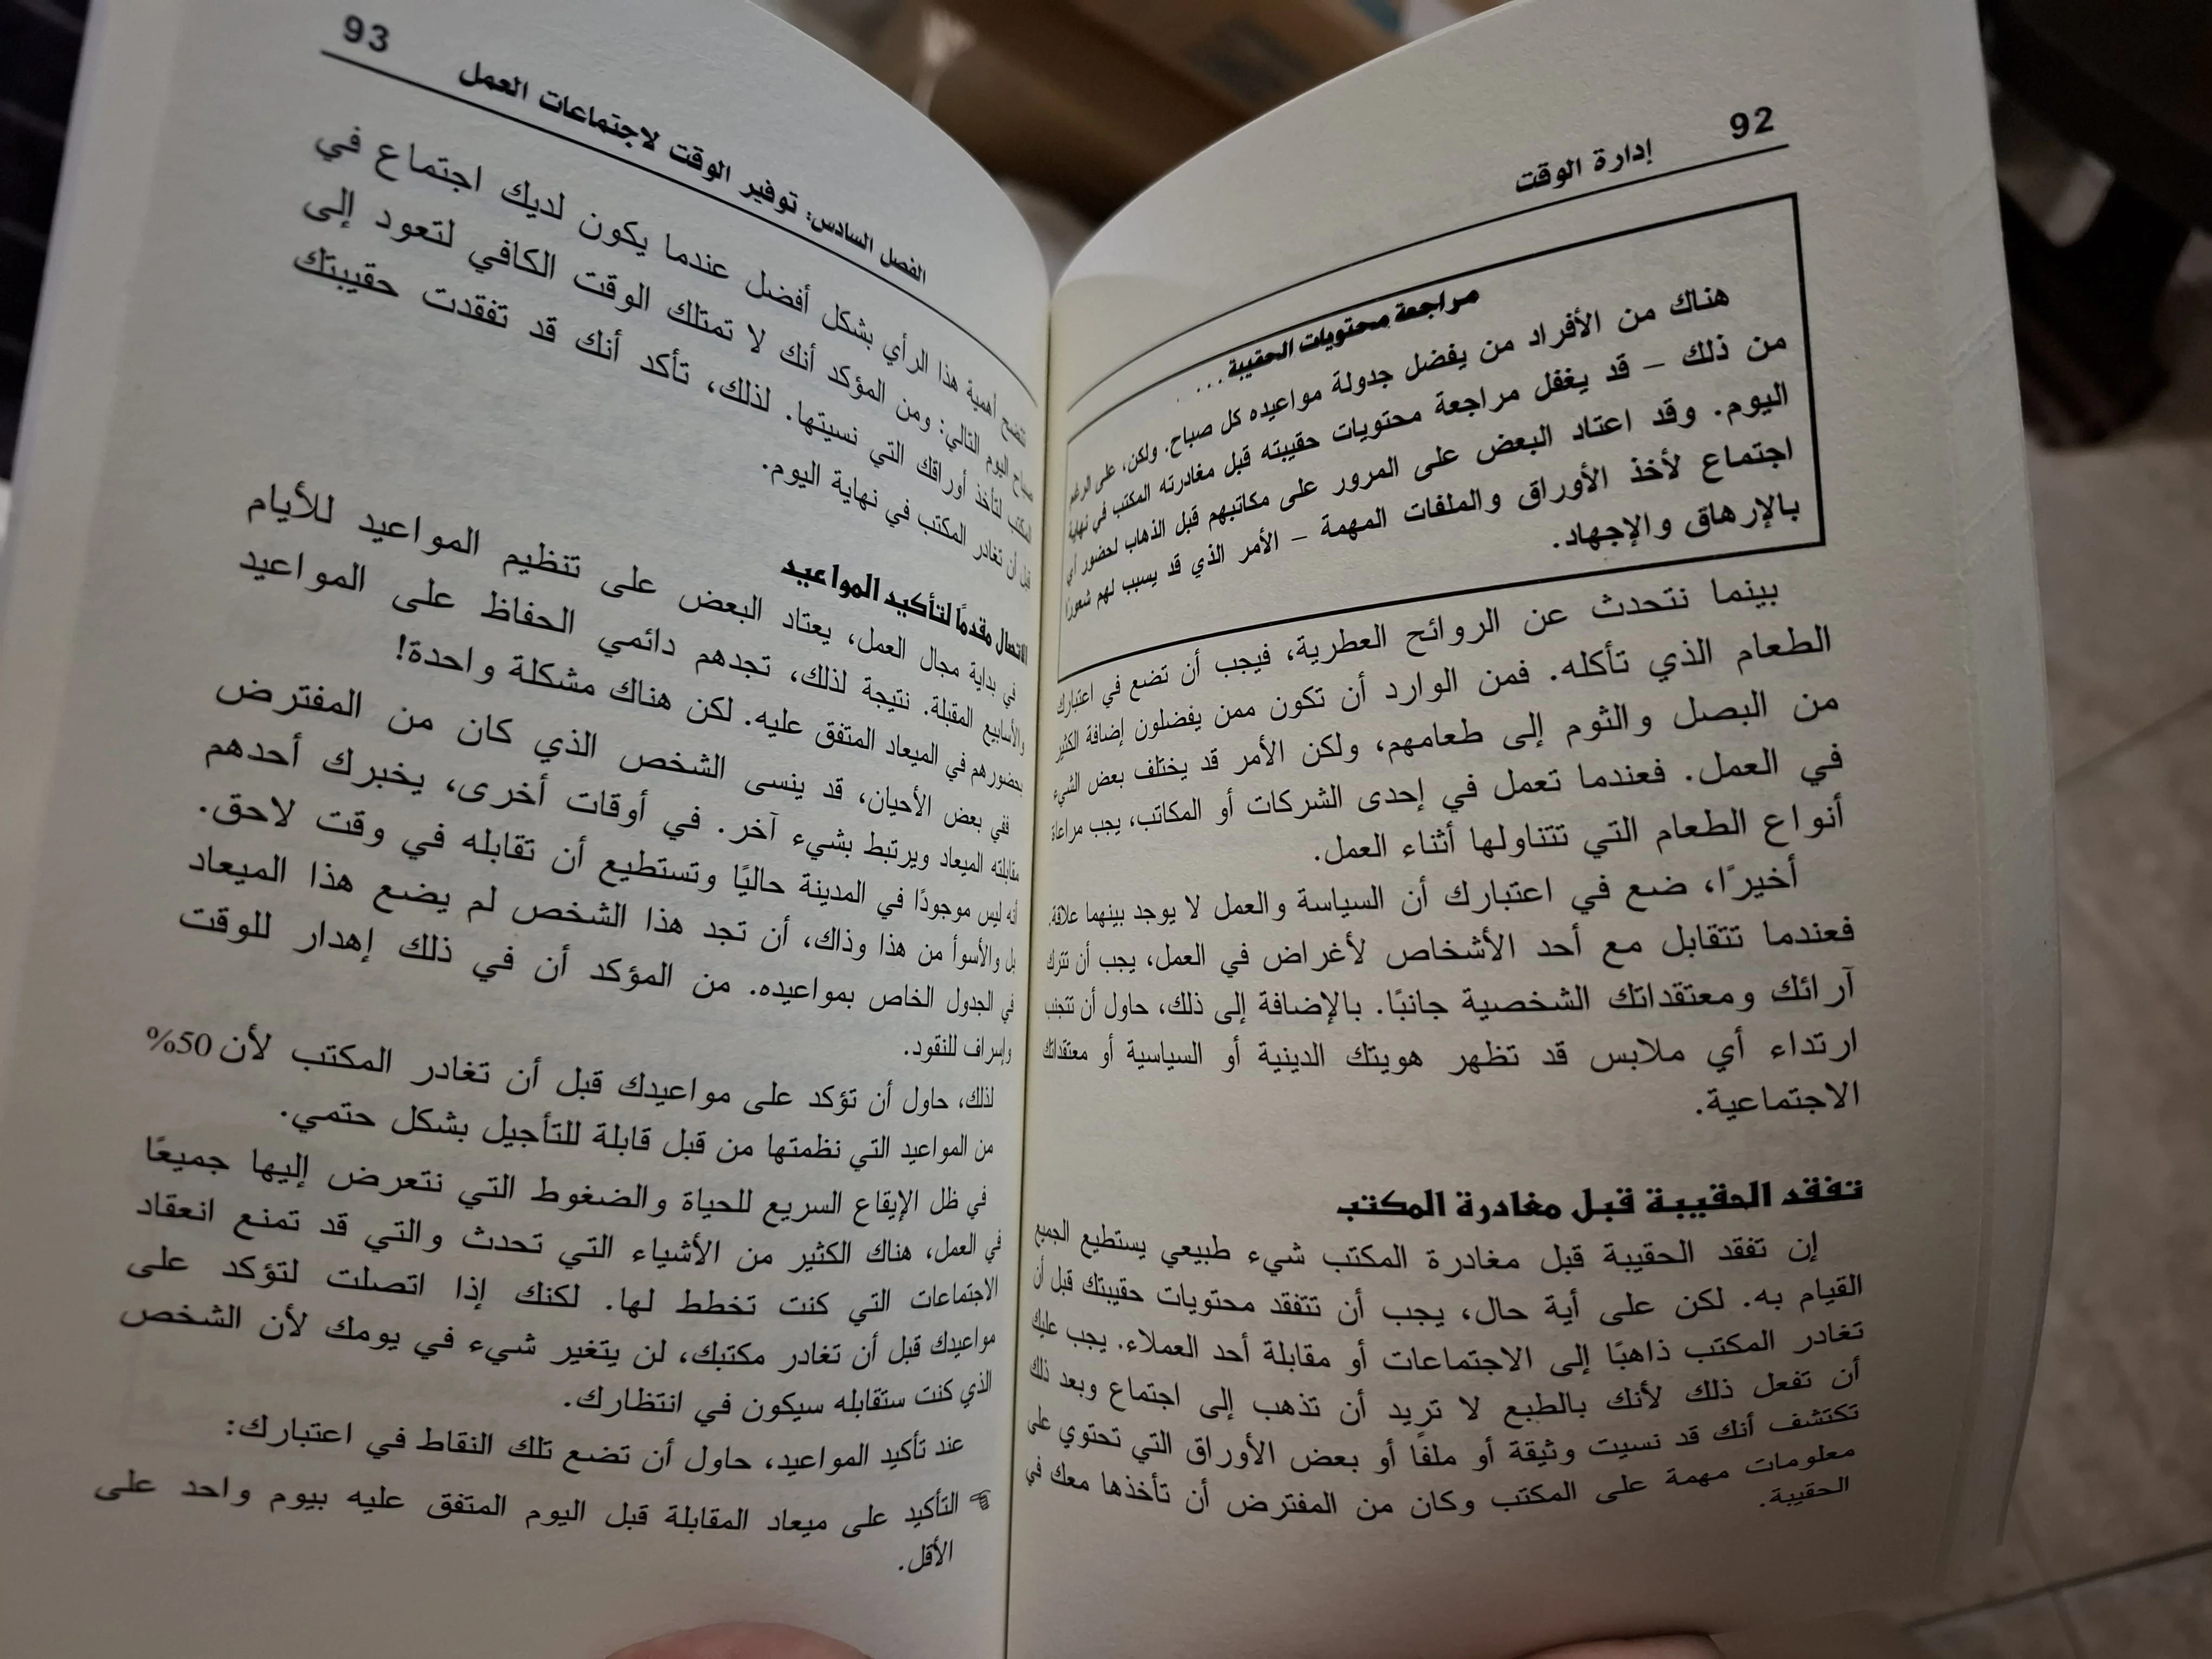 92
إدارة الوقت
مراجعة محتويات الحقيبة...
هناك من الأفراد من يفضل جدولة مواعيده كل صباح. ولكن، على الرغم
من ذلك – قد يغفل مراجعة محتويات حقيبته قبل مغادرته المكتب في نهاية
اليوم. وقد اعتاد البعض على المرور على مكاتبهم قبل الذهاب لحضور أي
اجتماع لأخذ الأوراق والملفات المهمة – الأمر الذي قد يسبب لهم شعورًا
بالإرهاق والإجهاد.
بينما نتحدث عن الروائح العطرية، فيجب أن تضع في اعتبارك
الطعام الذي تأكله. فمن الوارد أن تكون ممن يفضلون إضافة الكثير
من البصل والثوم إلى طعامهم، ولكن الأمر قد يختلف بعض الشيء
في العمل. فعندما تعمل في إحدى الشركات أو المكاتب، يجب مراعاة
أنواع الطعام التي تتناولها أثناء العمل.
أخيرًا، ضع في اعتبارك أن السياسة والعمل لا يوجد بينهما علاقة.
فعندما تتقابل مع أحد الأشخاص لأغراض في العمل، يجب أن تترك
آرائك ومعتقداتك الشخصية جانبًا. بالإضافة إلى ذلك، حاول أن تتجنب
ارتداء أي ملابس قد تظهر هويتك الدينية أو السياسية أو معتقداتك
الاجتماعية.
تفقد الحقيبة قبل مغادرة المكتب
إن تفقد الحقيبة قبل مغادرة المكتب شيء طبيعي يستطيع الجميع
القيام به. لكن على أية حال، يجب أن تتفقد محتويات حقيبتك قبل أن
تغادر المكتب ذاهبًا إلى الاجتماعات أو مقابلة أحد العملاء. يجب عليك
أن تفعل ذلك لأنك بالطبع لا تريد أن تذهب إلى اجتماع وبعد ذلك
تكتشف أنك قد نسيت وثيقة أو ملفًا أو بعض الأوراق التي تحتوي على
معلومات مهمة على المكتب وكان من المفترض أن تأخذها معك في
الحقيبة.
93
الفصل السادس: توفير الوقت لاجتماعات العمل
تتضح أهمية هذا الرأي بشكل أفضل عندما يكون لديك اجتماع في
صباح اليوم التالي: ومن المؤكد أنك لا تمتلك الوقت الكافي لتعود إلى
المكتب لتأخذ أوراقك التي نسيتها. لذلك، تأكد أنك قد تفقدت حقيبتك
قبل أن تغادر المكتب في نهاية اليوم.
الاتصال مقدمًا لتأكيد المواعيد
في بداية مجال العمل، يعتاد البعض على تنظيم المواعيد للأيام
والأسابيع المقبلة. نتيجة لذلك، تجدهم دائمي الحفاظ على المواعيد
بحضورهم في الميعاد المتفق عليه. لكن هناك مشكلة واحدة!
ففي بعض الأحيان، قد ينسى الشخص الذي كان من المفترض
مقابلته الميعاد ويرتبط بشيء آخر. في أوقات أخرى، يخبرك أحدهم
أنه ليس موجودًا في المدينة حاليًا وتستطيع أن تقابله في وقت لاحق.
بل والأسوأ من هذا وذاك، أن تجد هذا الشخص لم يضع هذا الميعاد
في الجدول الخاص بمواعيده. من المؤكد أن في ذلك إهدار للوقت
وإسراف للنقود.
لذلك، حاول أن تؤكد على مواعيدك قبل أن تغادر المكتب لأن 50%
من المواعيد التي نظمتها من قبل قابلة للتأجيل بشكل حتمي.
في ظل الإيقاع السريع للحياة والضغوط التي نتعرض إليها جميعًا
في العمل، هناك الكثير من الأشياء التي تحدث والتي قد تمنع انعقاد
الاجتماعات التي كنت تخطط لها. لكنك إذا اتصلت لتؤكد على
مواعيدك قبل أن تغادر مكتبك، لن يتغير شيء في يومك لأن الشخص
الذي كنت ستقابله سيكون في انتظارك.
عند تأكيد المواعيد، حاول أن تضع تلك النقاط في اعتبارك:
التأكيد على ميعاد المقابلة قبل اليوم المتفق عليه بيوم واحد على
الأقل.